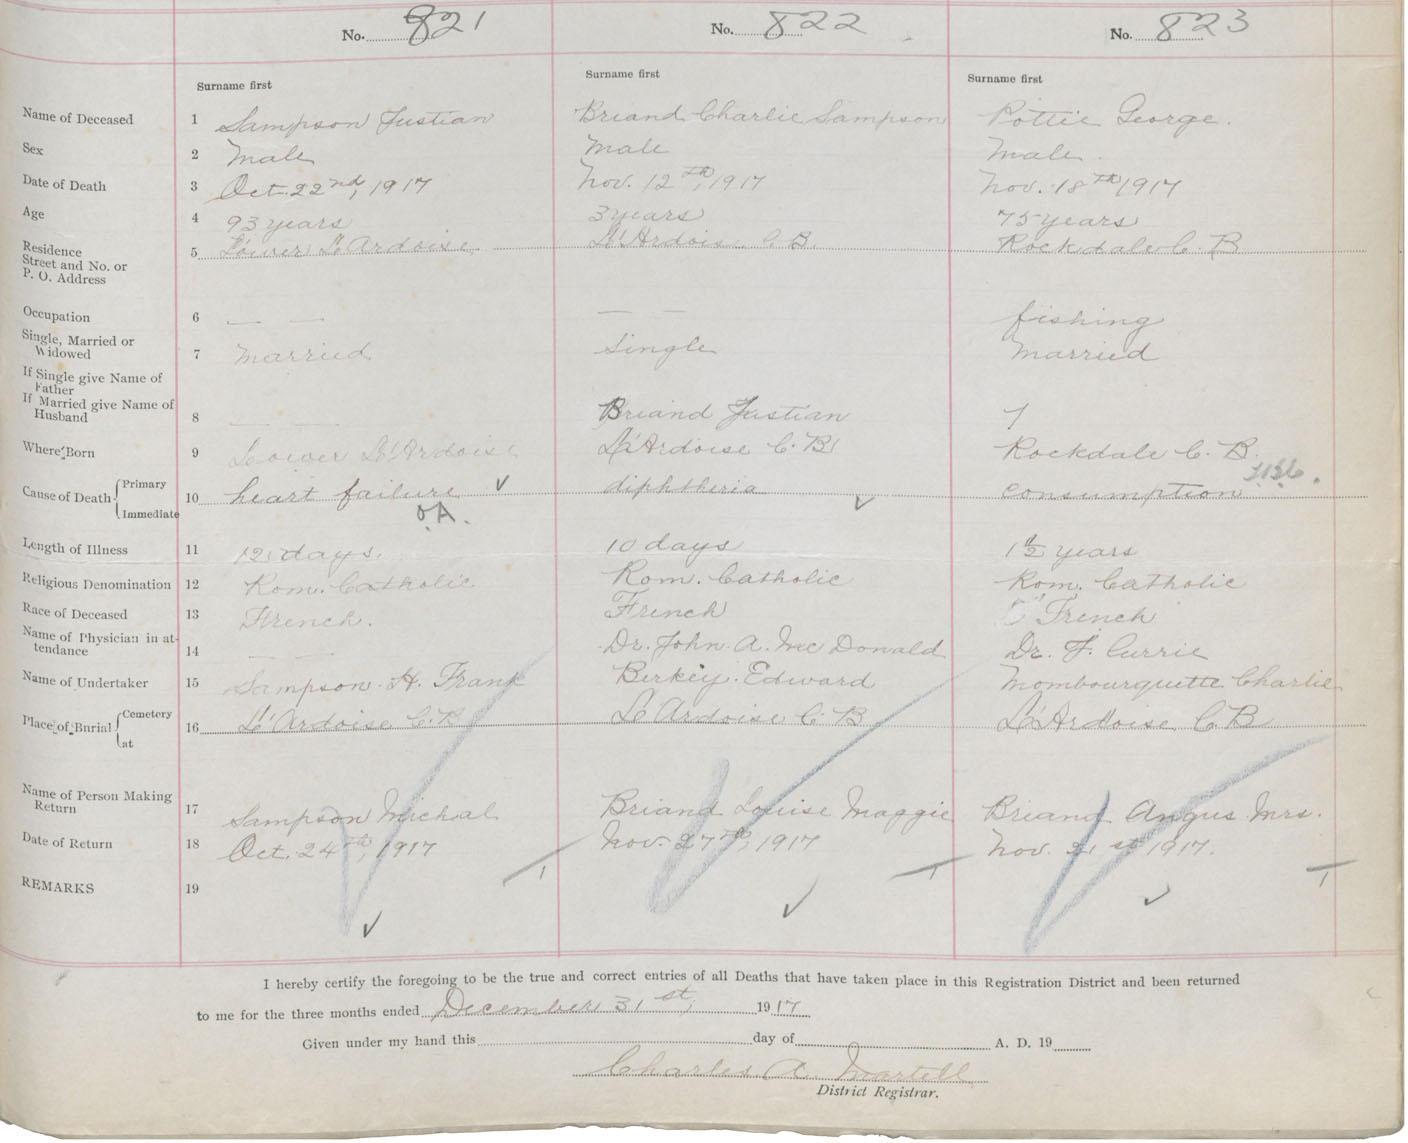 No. 821 No. 822 No. 823
Surname first Surname first Surname first
Name of Deceased 1 Sampson Justian Briand Charlie Sampson Pottie George.
Sex 2 Male Male Male.
Date of Death 3 Oct. 22nd, 1917 Nov. 12th, 1917 Nov. 18th 1917
Age 4 93 years 3 years 75 years
Residence
Street and No. or
P. O. Address 5 Lower L'Ardoise. L'Ardoise C. B. Rockdale C. B
Occupation 6 — — — — fishing
Single, Married or
Widowed 7 Married Single Married
If Single give Name of
Father
If Married give Name of
Husband 8 — — Briand Justian
Where Born 9 Lower L'Ardoise L'Ardoise C. B Rockdale C. B.
Cause of Death Primary 10 heart failure ✓ diphtheria ✓ consumption
Immediate O.A.
Length of Illness 11 12 days. 10 days 1½ years
Religious Denomination 12 Rom. Catholic Rom. Catholic Rom. Catholic
Race of Deceased 13 French. French French
Name of Physician in at-
tendance 14 — — Dr. John A. Mc Donald Dr. F. Currie
Name of Undertaker 15 Sampson H. Frank Berkey. Edward Mombourquette Charlie
Place of Burial Cemetery 16 L'Ardoise C. B L'Ardoise C. B L'Ardoise C B
at
Name of Person Making
Return 17 Sampson Michal Briand Louise Maggie Briand Angus Mrs.
Date of Return 18 Oct. 24th, 1917 Nov. 27th, 1917 Nov. 21st 1917.
REMARKS 19
I hereby certify the foregoing to be the true and correct entries of all Deaths that have taken place in this Registration District and been returned
to me for the three months ended December 31st, 1917
Given under my hand this day of A. D. 19
Charles A. Martell
District Registrar.